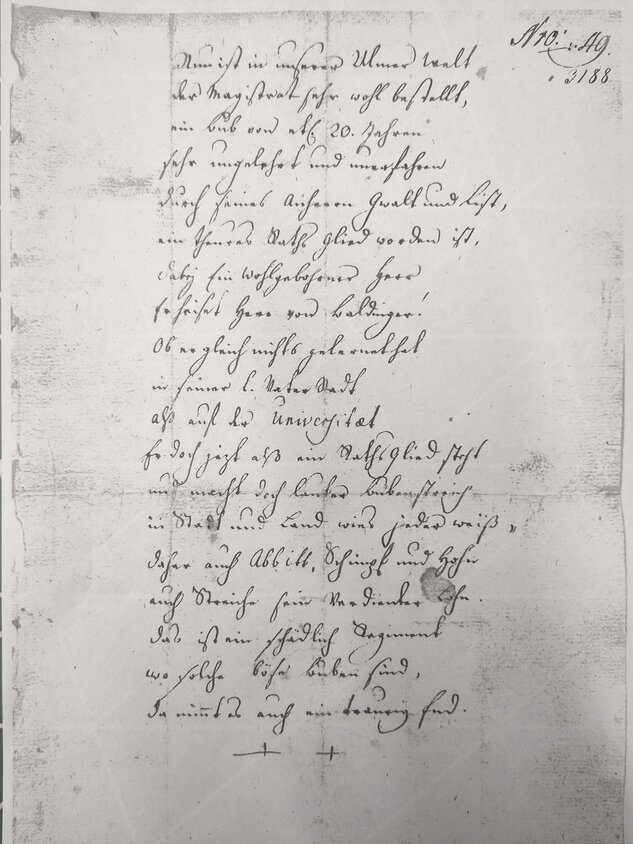 Nro: 49
" 3188
Nun ist in unserer Ulmer Welt
der Magistrat sehr wohl bestellt,
ein Bub von etl. 20. Jahren
sehr ungelehrt und unerfahren
durch seines Anherrn Gwalt und List,
ein theures Raths Glied worden ist,
dabej Ein Wohlgebohrner Herr
Er heiset Herr von Baldinger!
Ob er gleich nichts gelernet hat
in seiner l. Vater Stadt
alß auf der Universitæt
Er doch jezt alß ein Raths Glied steht
und macht doch lauter Bubenstreich
in Stadt und Land wies jeder weiß "
daher auch Abbitt, Schimpf und Hohn
auch Streiche sein Verdienter Lohn.
das ist ein schädlich Regiment
wo solche böse Buben sind,
da nimmt es auch ein traurig End.